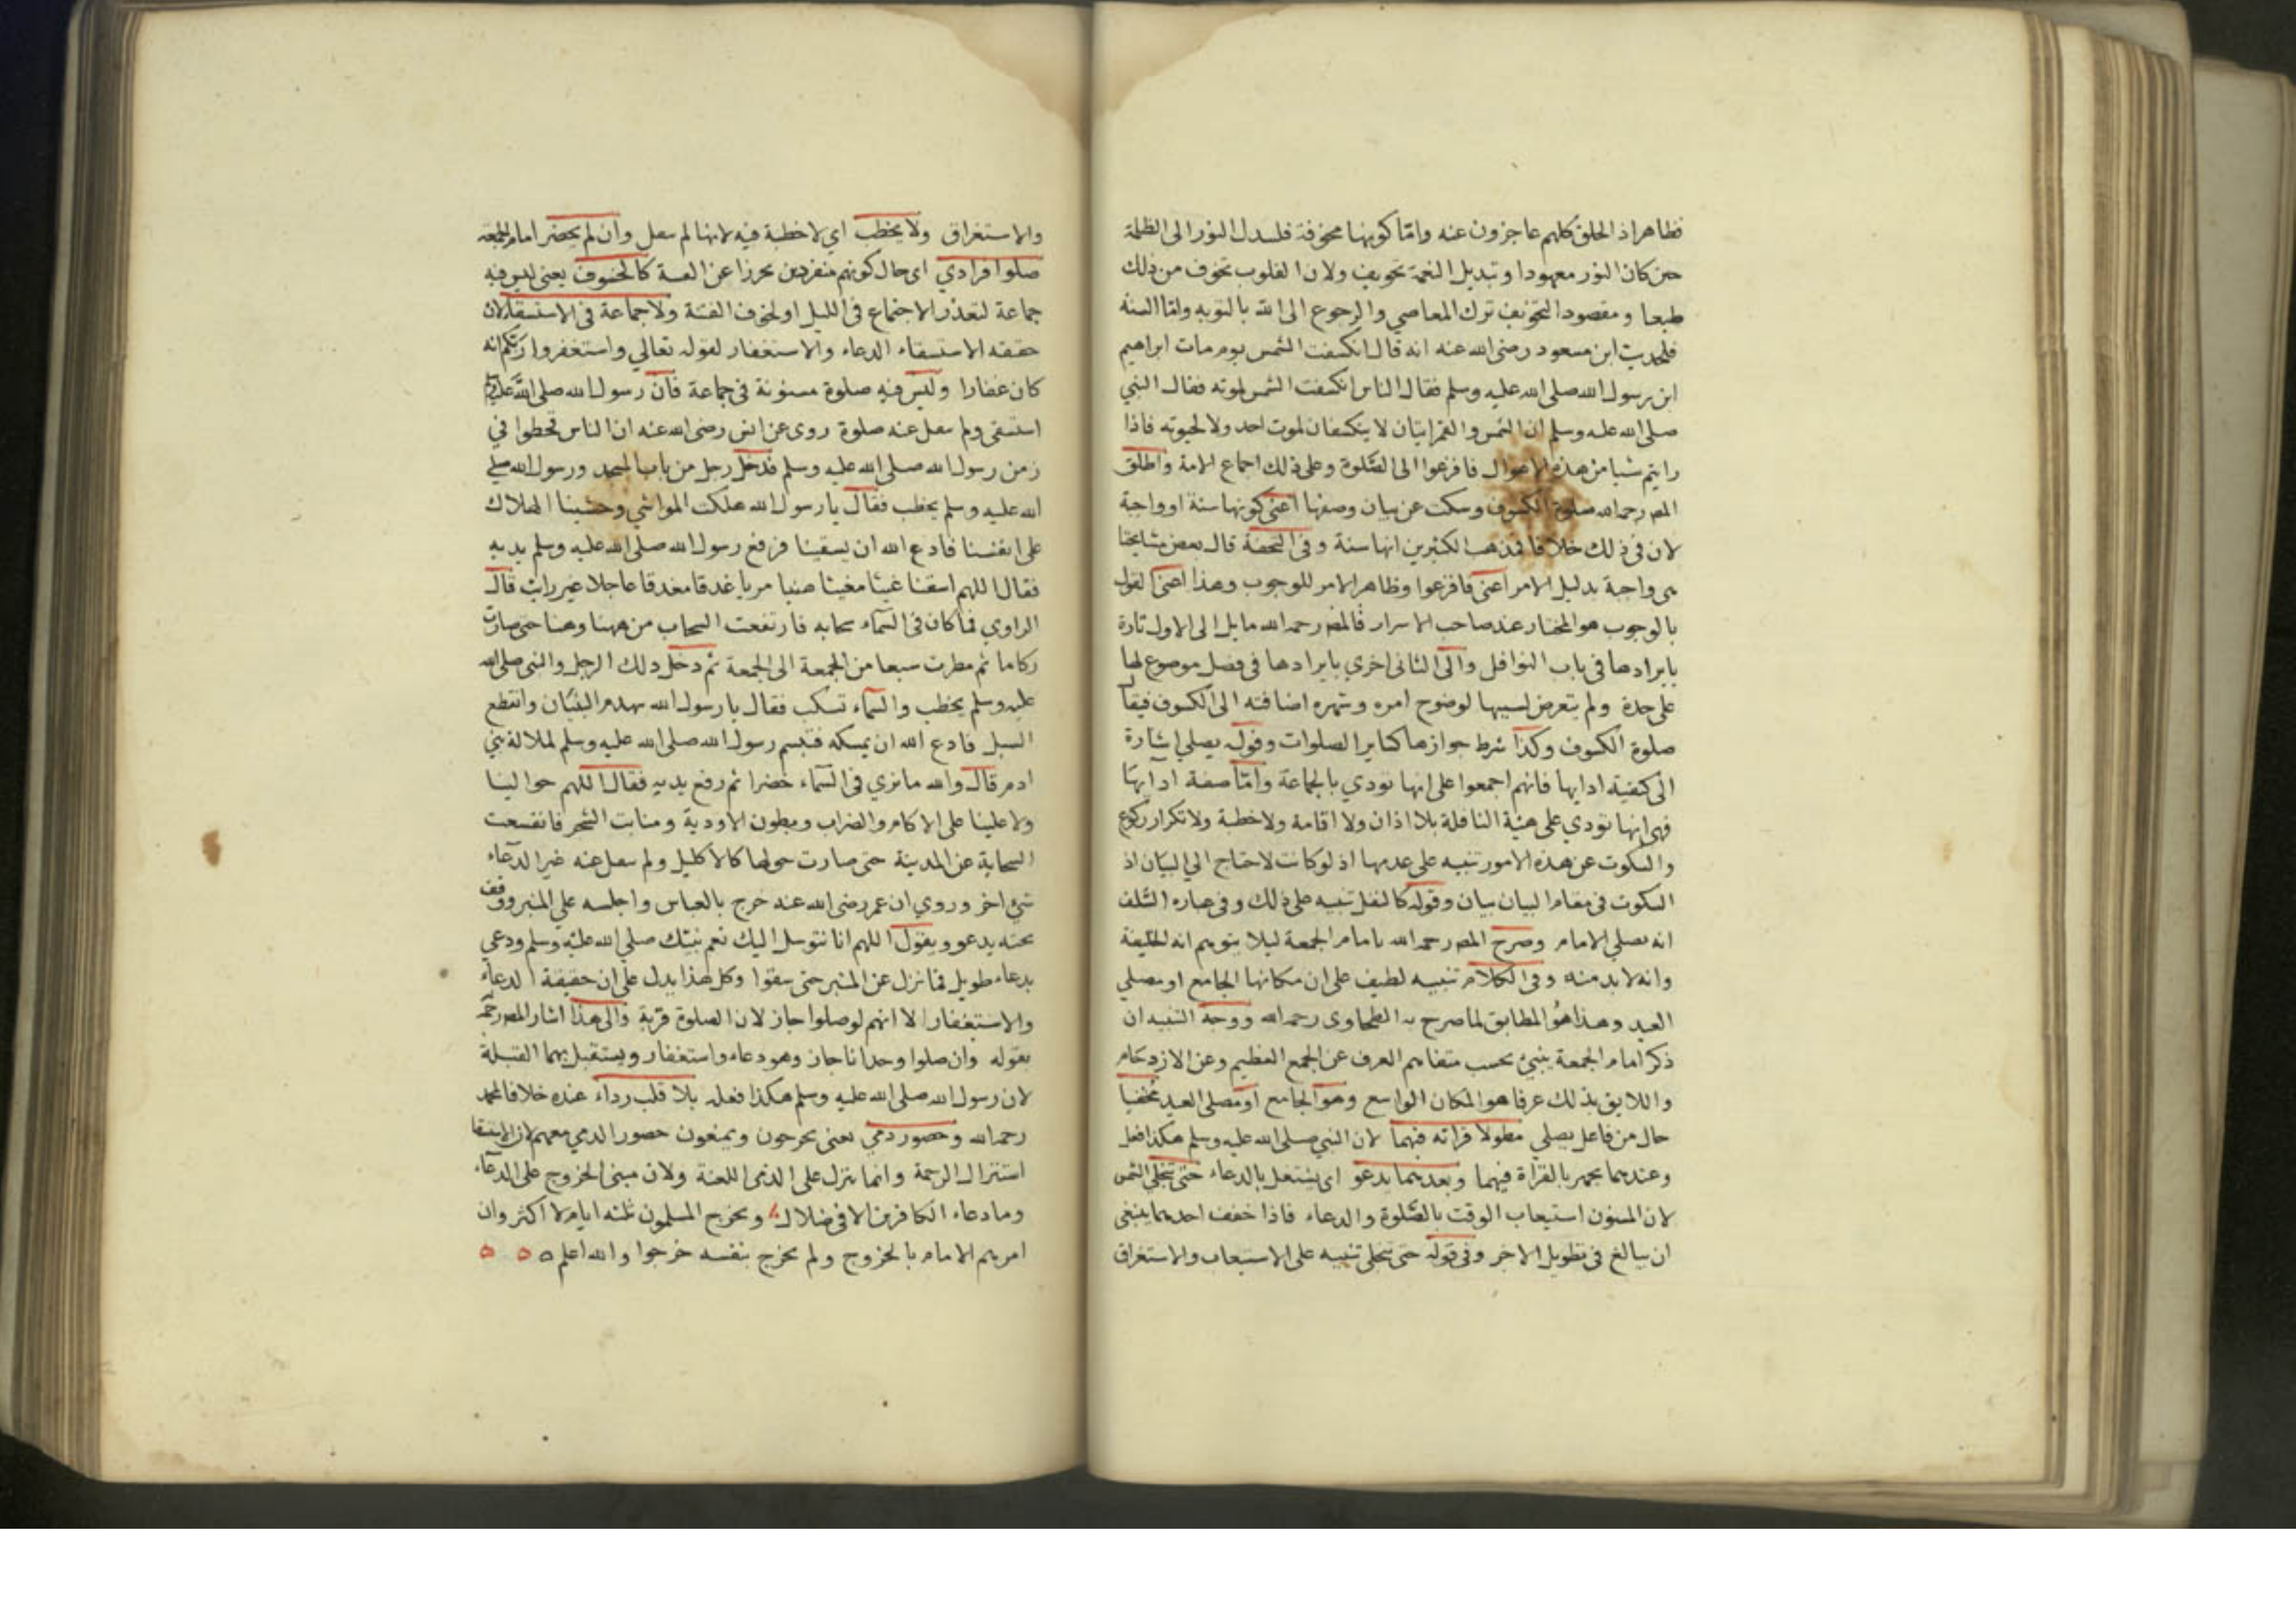 فظاهر اذ الخلق كلهم عاجزون عنه واما كونها مخوفة فلتبدل النور الى الظلمة
حين كان النور معهودا وتبديل النعمة تخويف ولان القلوب تخوف من ذلك
طبعا ومقصود التخويف ترك المعاصي والرجوع الى الله بالتوبه واما السنه
فلحديث ابن مسعود رضى الله عنه انه قال انكسفت الشمس يوم مات ابراهيم
ابن رسول الله صلى الله عليه وسلم فقال الناس انكسفت الشمس لموته فقال النبي
صلى الله عليه وسلم ان الشمس والقمر ايتان لا ينكسفان لموت احد ولا لحيوته فاذا
رايتم شيا من هذه الاهوال فافزعوا الى الصلوة وعلى ذلك اجماع الامة واطلق
المص رحمه الله صلوة الكسوف وسكت عن بيان وصفها اعنى كونها سنة او واجبة
لان فى ذلك خلافا فذهب الكثيرين انها سنة وفى التحفة قال بعض مشايخنا
هى واجبة بدليل الامر اعنى فافزعوا وظاهر الامر للوجوب وهذا اعنى القول
بالوجوب هو المختار عند صاحب الاسرار فالمص رحمه الله مايل الى الاول تارة
بايرادها فى باب النوافل والى الثانى اخرى بايرادها فى فصل موضوع لها
على حدة ولم يتعرض لسببها لوضوح امره وشهره اضافته الى الكسوف فيقال
صلوة الكسوف وكذا شرط جوازها كساير الصلوات وقوله يصلى اشارة
الى كيفية ادايها فانهم اجمعوا على انها تودي بالجماعة واما صفة ادايها
فهى انها تودي على هيئة النافلة بلا اذان ولا اقامة ولا خطبة ولا تكرار ركوع
والسكوت عن هذه الامور تنبيه على عدمها اذ لو كانت لاحتاج الى البيان اذ
السكوت فى مقام البيان بيان وقوله كالنفل تنبيه على ذلك وفى عباره السلف
انه يصلى الامام وصرح المص رحمه الله بامام الجمعة ليلا يتوهم انه الخليفة
وانه لا بد منه وفى الكلام تنبيه لطيف على ان مكانها الجامع او مصلى
العيد وهذا هو المطابق لما صرح به الطحاوى رحمه الله ووجه التنبيه ان
ذكر امام الجمعة ينبئ بحسب متفاهم العرف عن الجمع العظيم وعن الازدحام
واللايق بذلك عرفا هو المكان الواسع وهو الجامع او مصلى العيد مخفيا
حال من فاعل يصلي مطولا قراته فيهما لان النبي صلى الله عليه وسلم هكذا فعل
وعندهما يجهر بالقراة فيهما وبعدهما يدعو اى يشتغل بالدعاء حتى تنجلي الشمس
لان المسنون استيعاب الوقت بالصلوة والدعاء فاذا خفف احدهما ينبغى
ان يبالغ فى تطويل الاخر وفى قوله حتى تنجلى تنبيه على الاستيعاب والاستغراق
والاستغراق ولا يخطب اي لا خطبة فيه لانها لم تنقل وان لم يحضر امام الجمعة
صلوا فرادي اى حال كونهم منفردين تحرزا عن الفتنة كالخسوف يعنى ليس فيه
جماعة لتعذر الاجتماع فى الليل او لخوف الفتنة ولا جماعة فى الاستسقاء لان
حقيقه الاستسقاء الدعاء والاستغفار لقوله تعالي واستغفروا ربكم انه
كان غفارا وليس فيه صلوة مسنونة فى جماعة فان رسول الله صلى الله عليه
استسقى ولم ينقل عنه صلوة روى عن انس رضى الله عنه ان الناس قحطوا في
زمن رسول الله صلى الله عليه وسلم فدخل رجل من باب المسجد ورسول الله صلى
الله عليه وسلم يخطب فقال يا رسول الله هلكت المواشي وخشينا الهلاك
على انفسنا فادع الله ان يسقينا فرفع رسول الله صلى الله عليه وسلم يديه
فقال اللهم اسقنا غيثا مغيثا هنيا مريا غدقا مغدقا عاجلا غير رايث قال
الراوي فما كان فى السماء سحابه فارتفعت السحاب من ههنا وهنا حتى صارت
ركاما ثم مطرت سبعا من الجمعة الى الجمعة ثم دخل ذلك الرجل والنبى صلى الله
عليه وسلم يخطب والسماء تسكب فقال يا رسول الله تهدم البنيان وانقطع
السبل فادع الله ان يمسكه فتبسم رسول الله صلى الله عليه وسلم لملالة بني
ادم قال والله ما نري فى السماء خضرا ثم رفع يديه فقال اللهم حوالينا
ولا علينا على الاكام والضراب وبطون الاودية ومنابت الشجر فانقشعت
السحابة عن المدينة حتى صارت حولها كالاكليل ولم ينقل عنه غير الدعاء
شئ اخر وروي ان عمر رضى الله عنه خرج بالعباس واجلسه علي المنبر ووقف
بجنبه يدعو ويقول اللهم انا نتوسل اليك بعم نبيك صلي الله عليه وسلم ودعي
بدعاء طويل فما نزل عن المنبر حتى سقوا وكل هذا يدل على ان حقيقة الدعاء
والاستغفار الا انهم لو صلوا جاز لان الصلوة قربة والى هذا اشار المص رحمه
بقوله وان صلوا وحدانا جاز وهو دعاء واستغفار ويستقبل بهما القبلة
لان رسول الله صلى الله عليه وسلم هكذا فعله بلا قلب رداء عنده خلافا لمحمد
رحمه الله وحضور ذمي يعنى يخرجون ويمنعون حضور الذمي معهم لان الاستسقا
استنزال الرحمة وانما ينزل على الذمى اللعنة ولان مبنى الخروج على الدعاء
وما دعاء الكافرين الا فى ضلال ويخرج المسلمون ثلثه ايام لا اكثر وان
امرهم الامام بالخروج ولم يخرج بنفسه خرجوا والله اعلم